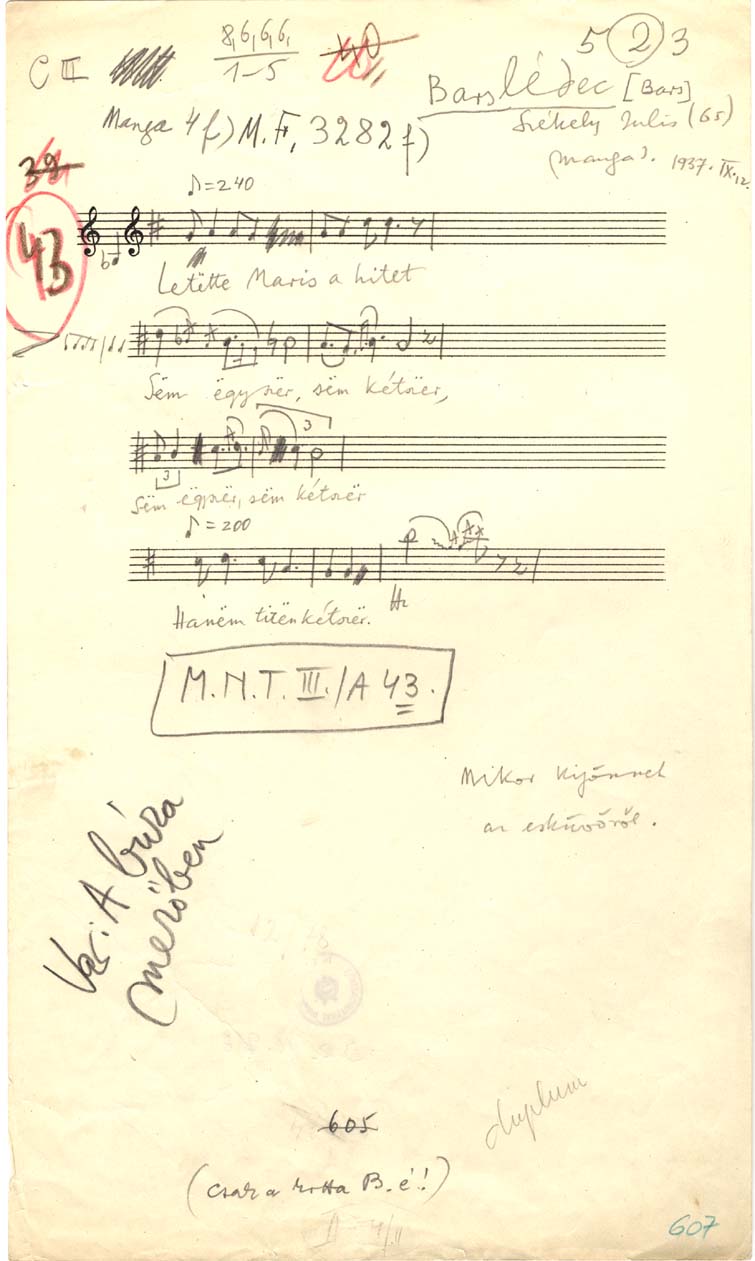 C III
8, 6, 6, 6,
1-5
5 2 3
Barslédec [Bars]
Székely Julis (65)
(Manga). 1937. IX. 12.
Manga 4 f) M. F. 3282 f)
39
43
♪=240
Letëtte Maris a hitet
Sëm ëgyszër, sëm kétszër,
3
3
Sëm ëgyszër, sëm kétszër
♪=200
Hanëm tizënkétszër.
M.N.T. III./A 43.
Mikor kijönnek
az esküvőről.
Var: A búza
mezőben
605
duplum
(csak a kotta B. é!)
607